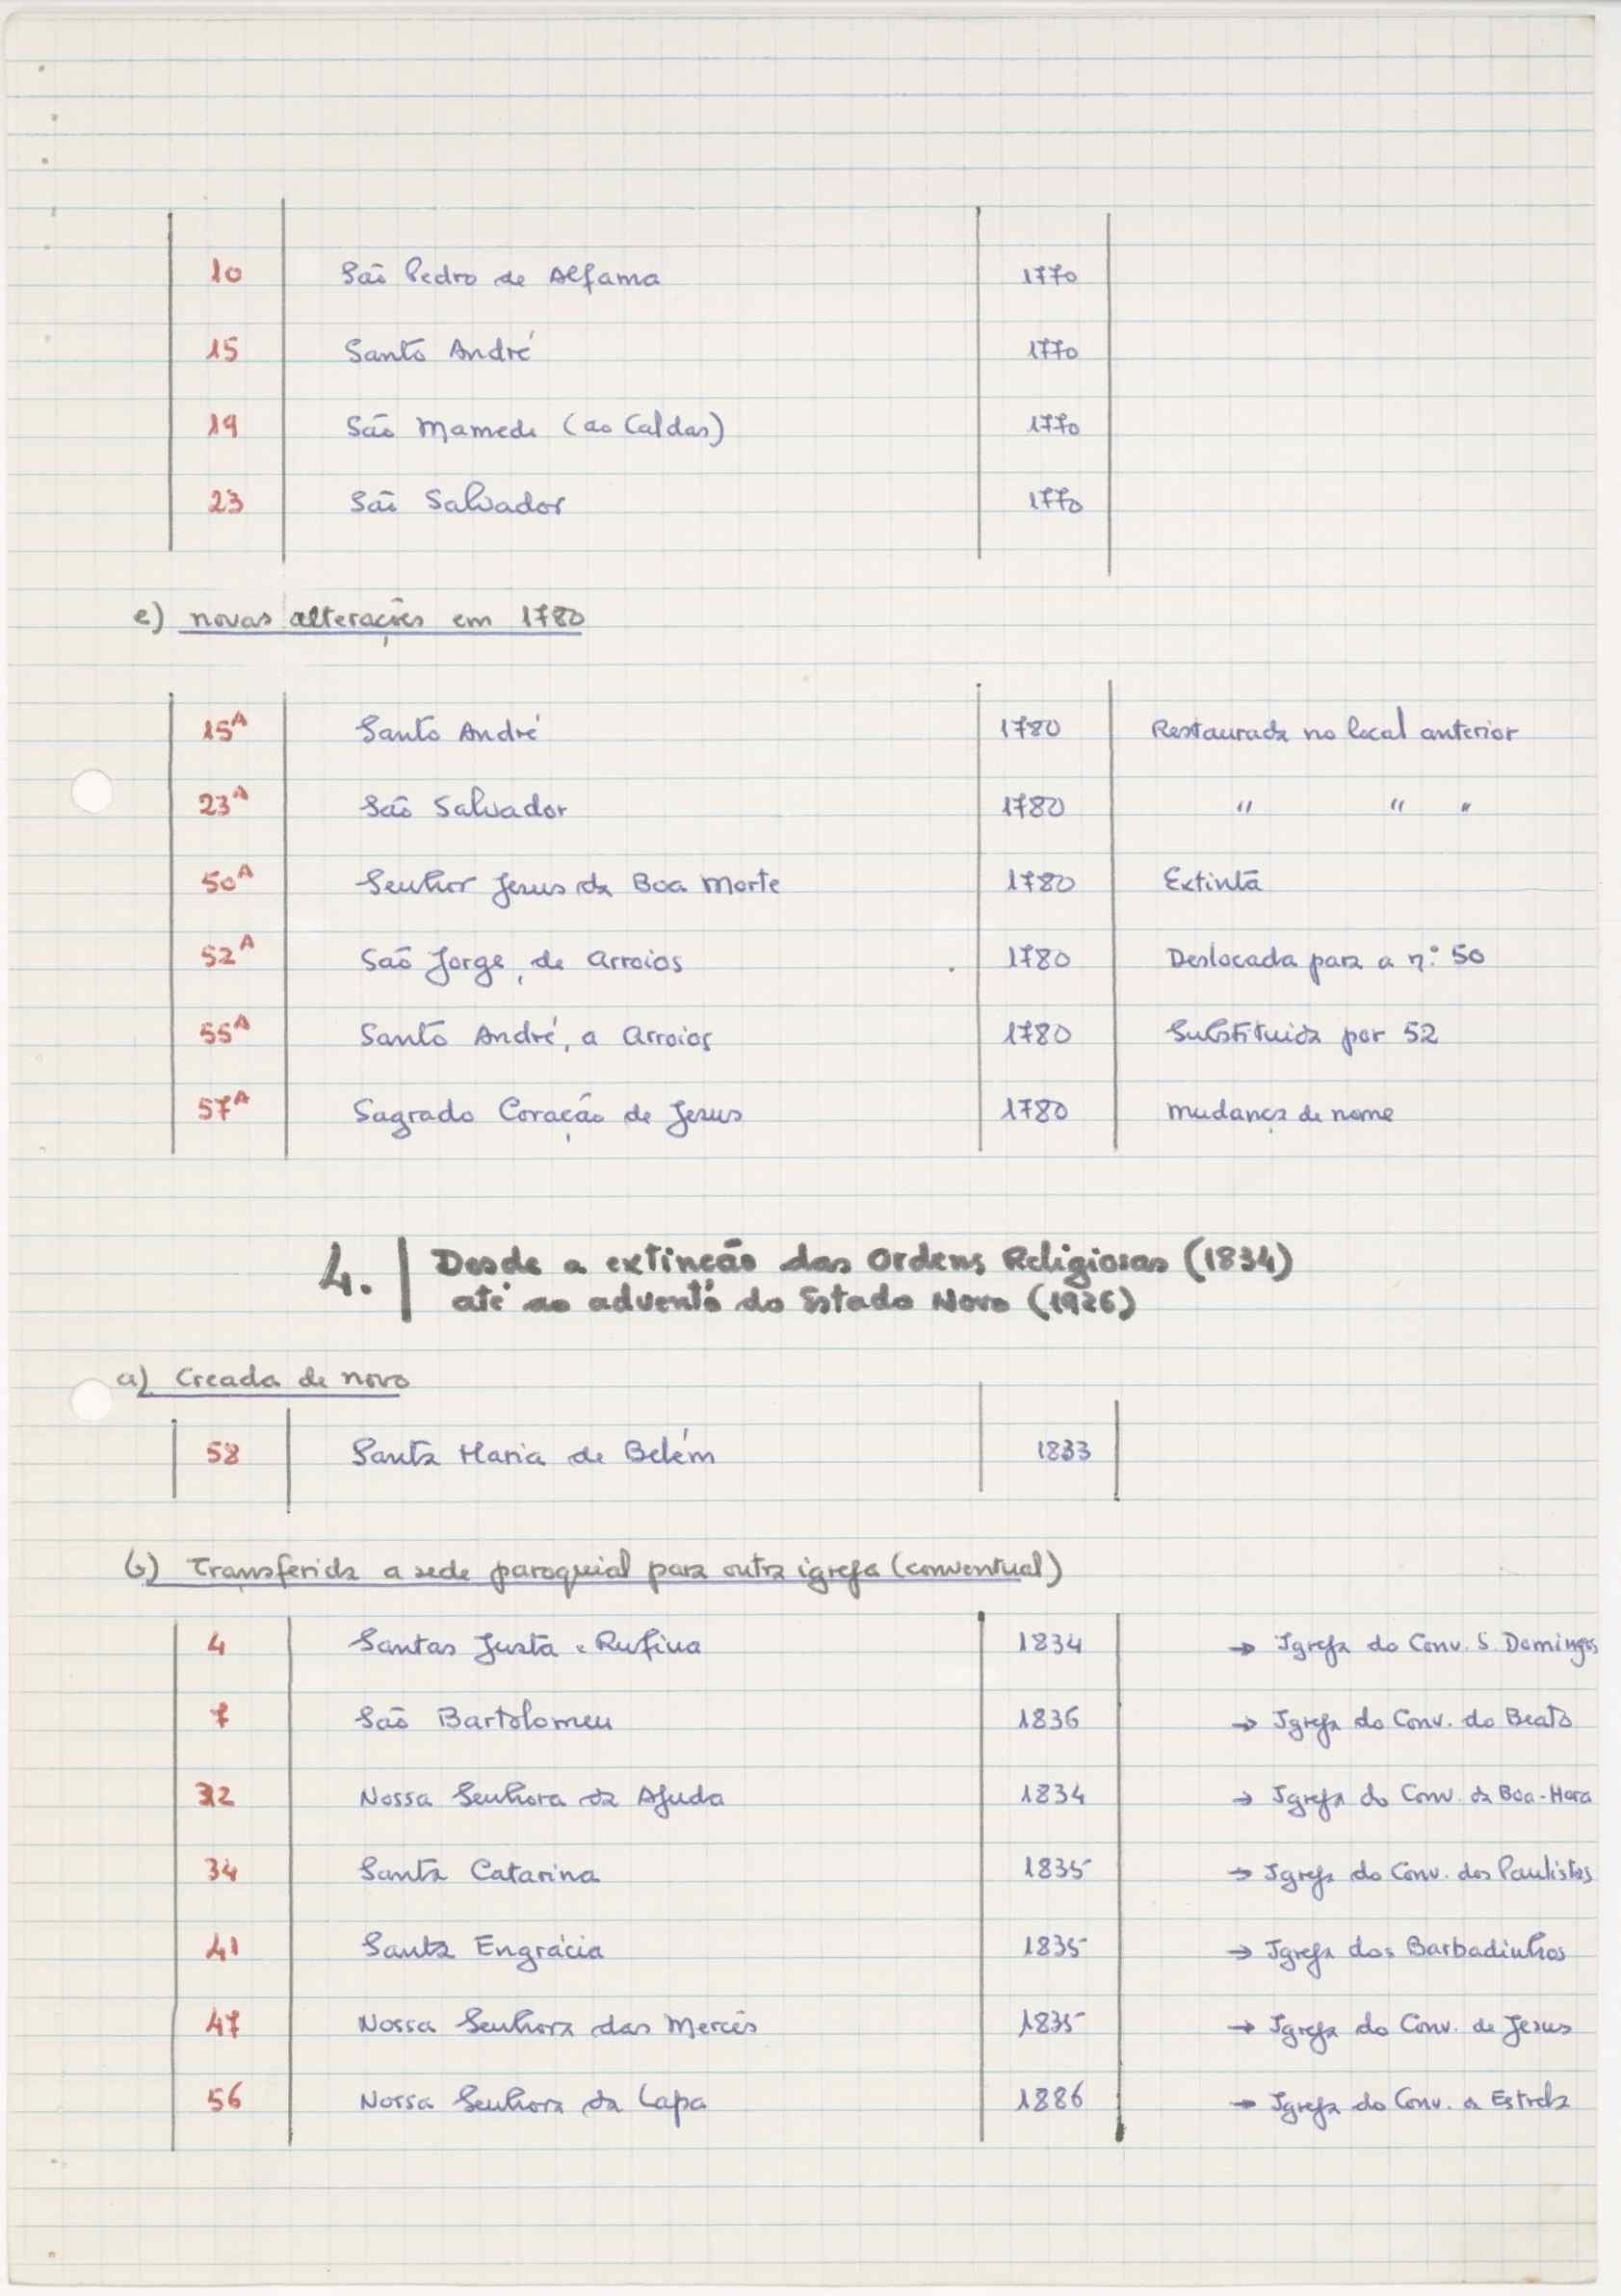 10 São Pedro de Alfama 1770
15 Santo André 1770
19 São Mamede (ao Caldas) 1770
23 São Salvador 1770
e) novas alterações em 1780
15A Santo André 1780 Restaurada no local anterior
23A São Salvador 1780 " " "
50A Senhor Jesus da Boa Morte 1780 Extinta
52A São Jorge, de Arroios 1780 Deslocada para a n.º 50
55A Santo André, a Arroios 1780 Substituida por 52
57A Sagrado Coração de Jesus 1780 Mudança de nome
4. Desde a extinção das Ordens Religiosas (1834)
até ao advento do Estado Novo (1926)
a) Creada de novo
58 Santa Maria de Belém 1833
b) Transferida a sede paroquial para outra igreja (conventual)
4 Santas Justa e Rufina 1834 → Igreja do Conv. S. Domingos
7 São Bartolomeu 1836 → Igreja do Conv. do Beato
32 Nossa Senhora da Ajuda 1834 → Igreja do Conv. da Boa-Hora
34 Santa Catarina 1835 → Igreja do Conv. dos Paulistas
41 Santa Engrácia 1835 → Igreja dos Barbadinhos
47 Nossa Senhora das Mercês 1835 → Igreja do Conv. de Jesus
56 Nossa Senhora da Lapa 1886 → Igreja do Conv. a Estrela